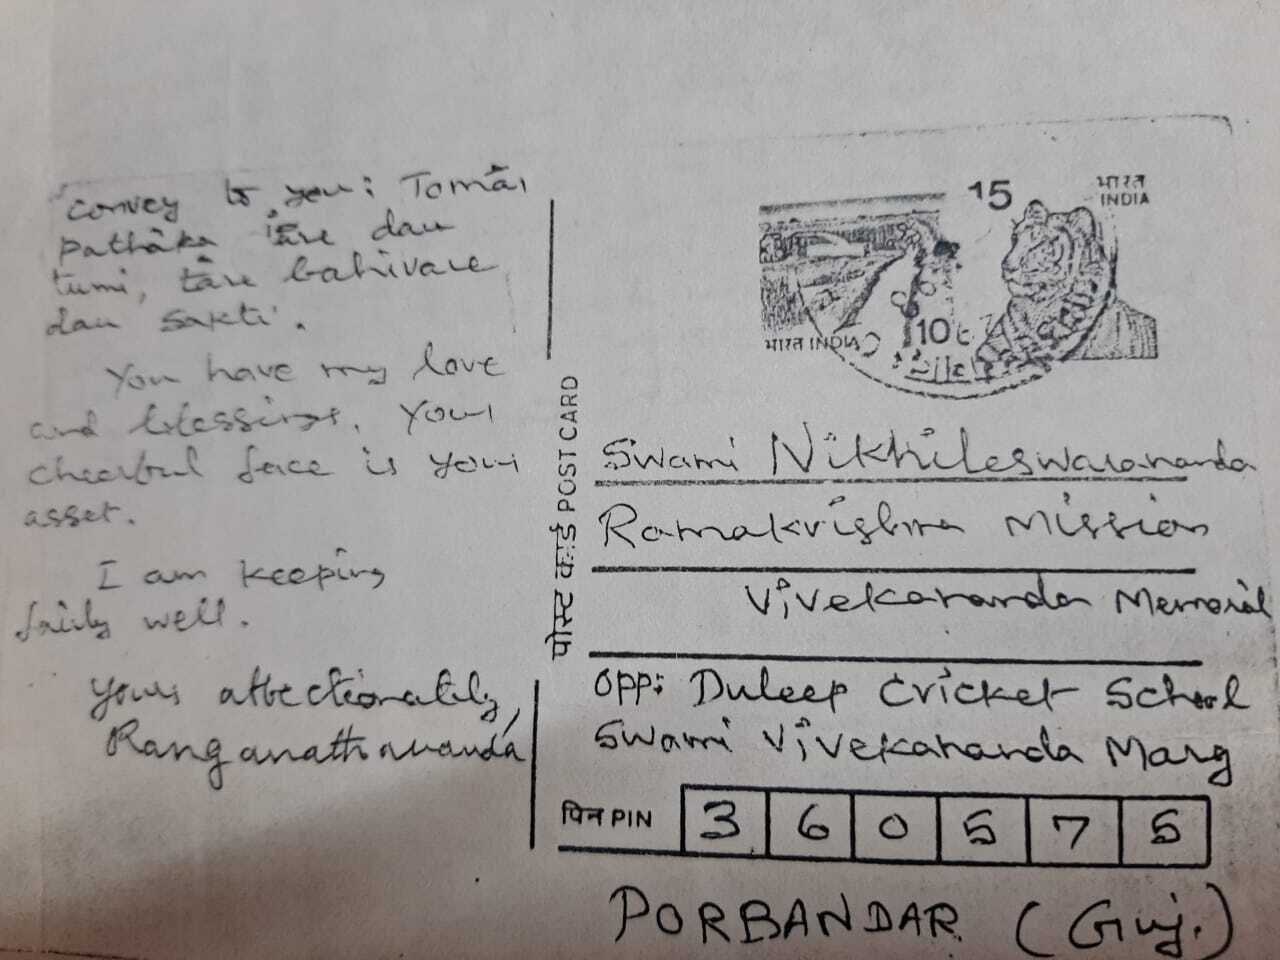 convey to you: Tomāi
pathāka jāre dau
tumi, tāre bahivare
dau sakti.
You have my love
and blessings. Your
cheerful face is your
asset.
I am keeping
fairly well.
Yours affectionately,
Ranganathananda
15
भारत
INDIA
भारत INDIA
10
पोस्ट कार्ड POST CARD
Swami Nikhileswarananda
Ramakrishna Mission
Vivekananda Memorial
Opp: Duleep Cricket School
Swami Vivekananda Marg
पिन PIN 3 6 0 5 7 5
PORBANDAR (Guj.)